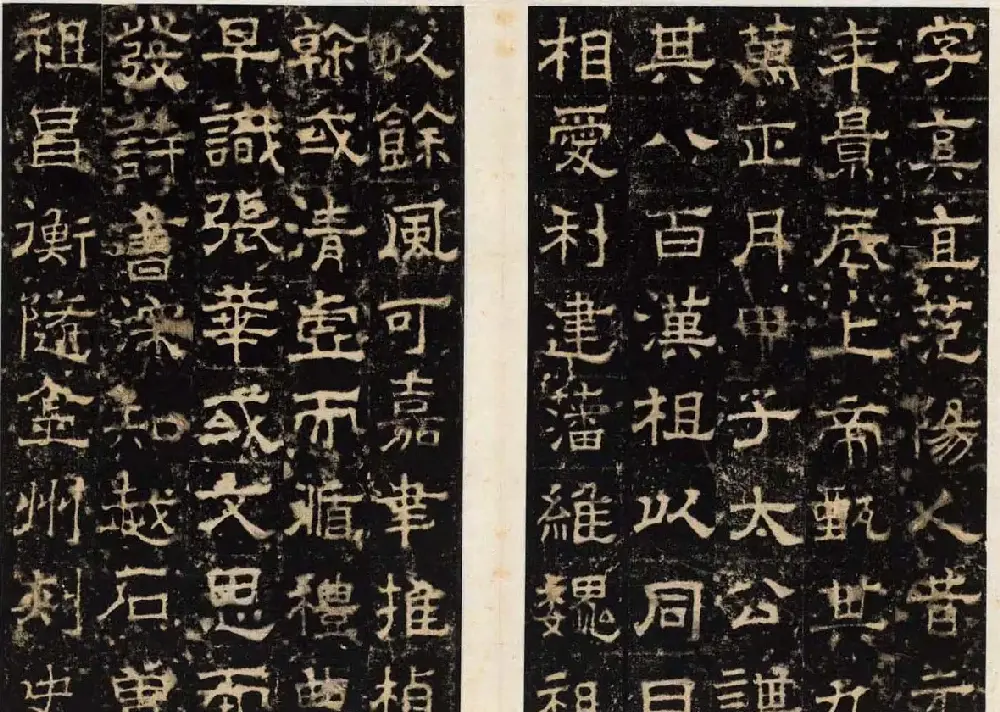 字真直范陽人昔元
年景辰上帝甄其九
萬正月甲子太公謀
其八百漢祖以同日
相愛利建藩維魏祖
以餘風可嘉聿推楨
榦或清虛而循禮典
早識張華或文思而
發詩書深知越石曾
祖昌衡隨金州刺史